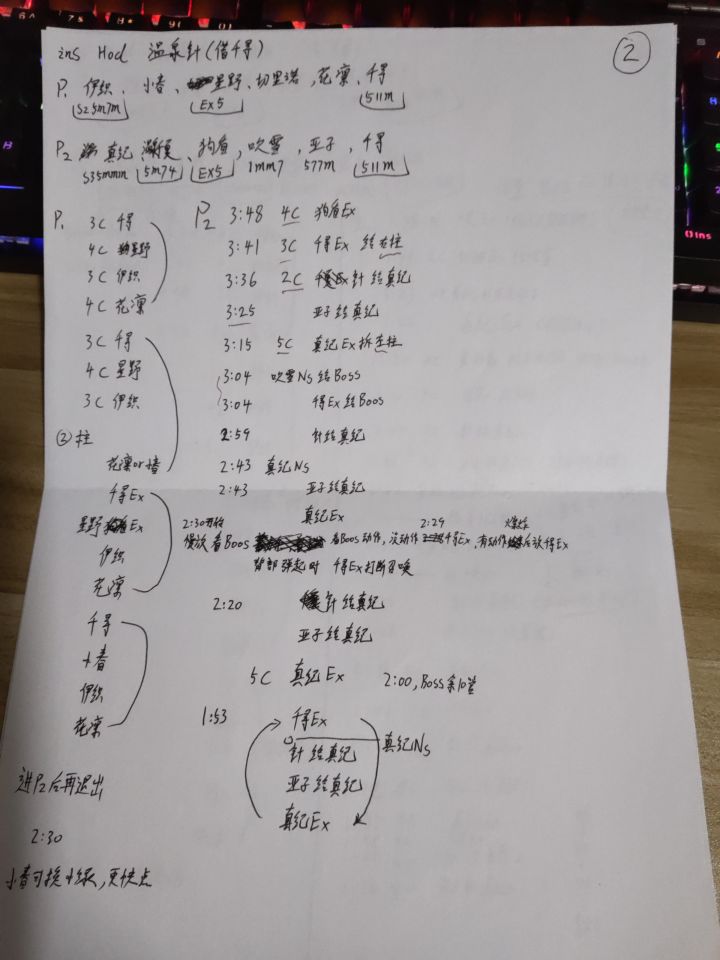 ②
ins Hod 温泉针(借千寻)
P1 伊织、小春、星野、切里诺,花凛、千寻
S25m7m Ex5 511m
P2 真纪、狗盾,吹雪,亚子,千寻
S35mmm 5m74 Ex5 1mm7 577m 511m
P1
3C 千寻
4C 星野
3C 伊织
4C 花凛
3C 千寻
4C 星野
3C 伊织
②柱
花凛or小春
千寻Ex
星野Ex
伊织
花凛
千寻
小春
伊织
花凛
进P2后再退出
2:30
小春可换小绿,更快点
P2 3:48 4C 狗盾Ex
3:41 3C 寻Ex 给右柱
3:36 2C 针给真纪
3:25 亚子给真纪
3:15 5C 真纪Ex拆左柱
3:04 吹雪Ns给Boss
3:04 寻Ex给Boos
2:59 针给真纪
2:43 真纪Ns
2:43 亚子给真纪
真纪Ex
2:30开始 2:29 爆炸
慢放看Boos 看Boos动作,没动作千寻Ex、有动作后放寻Ex
背部弹起时 千寻Ex打断召唤
2:20 针给真纪
亚子给真纪
5C 真纪Ex 2:00,Boss余10管
1:53 千寻Ex
真纪Ns
针给真纪
亚子给真纪
真纪Ex